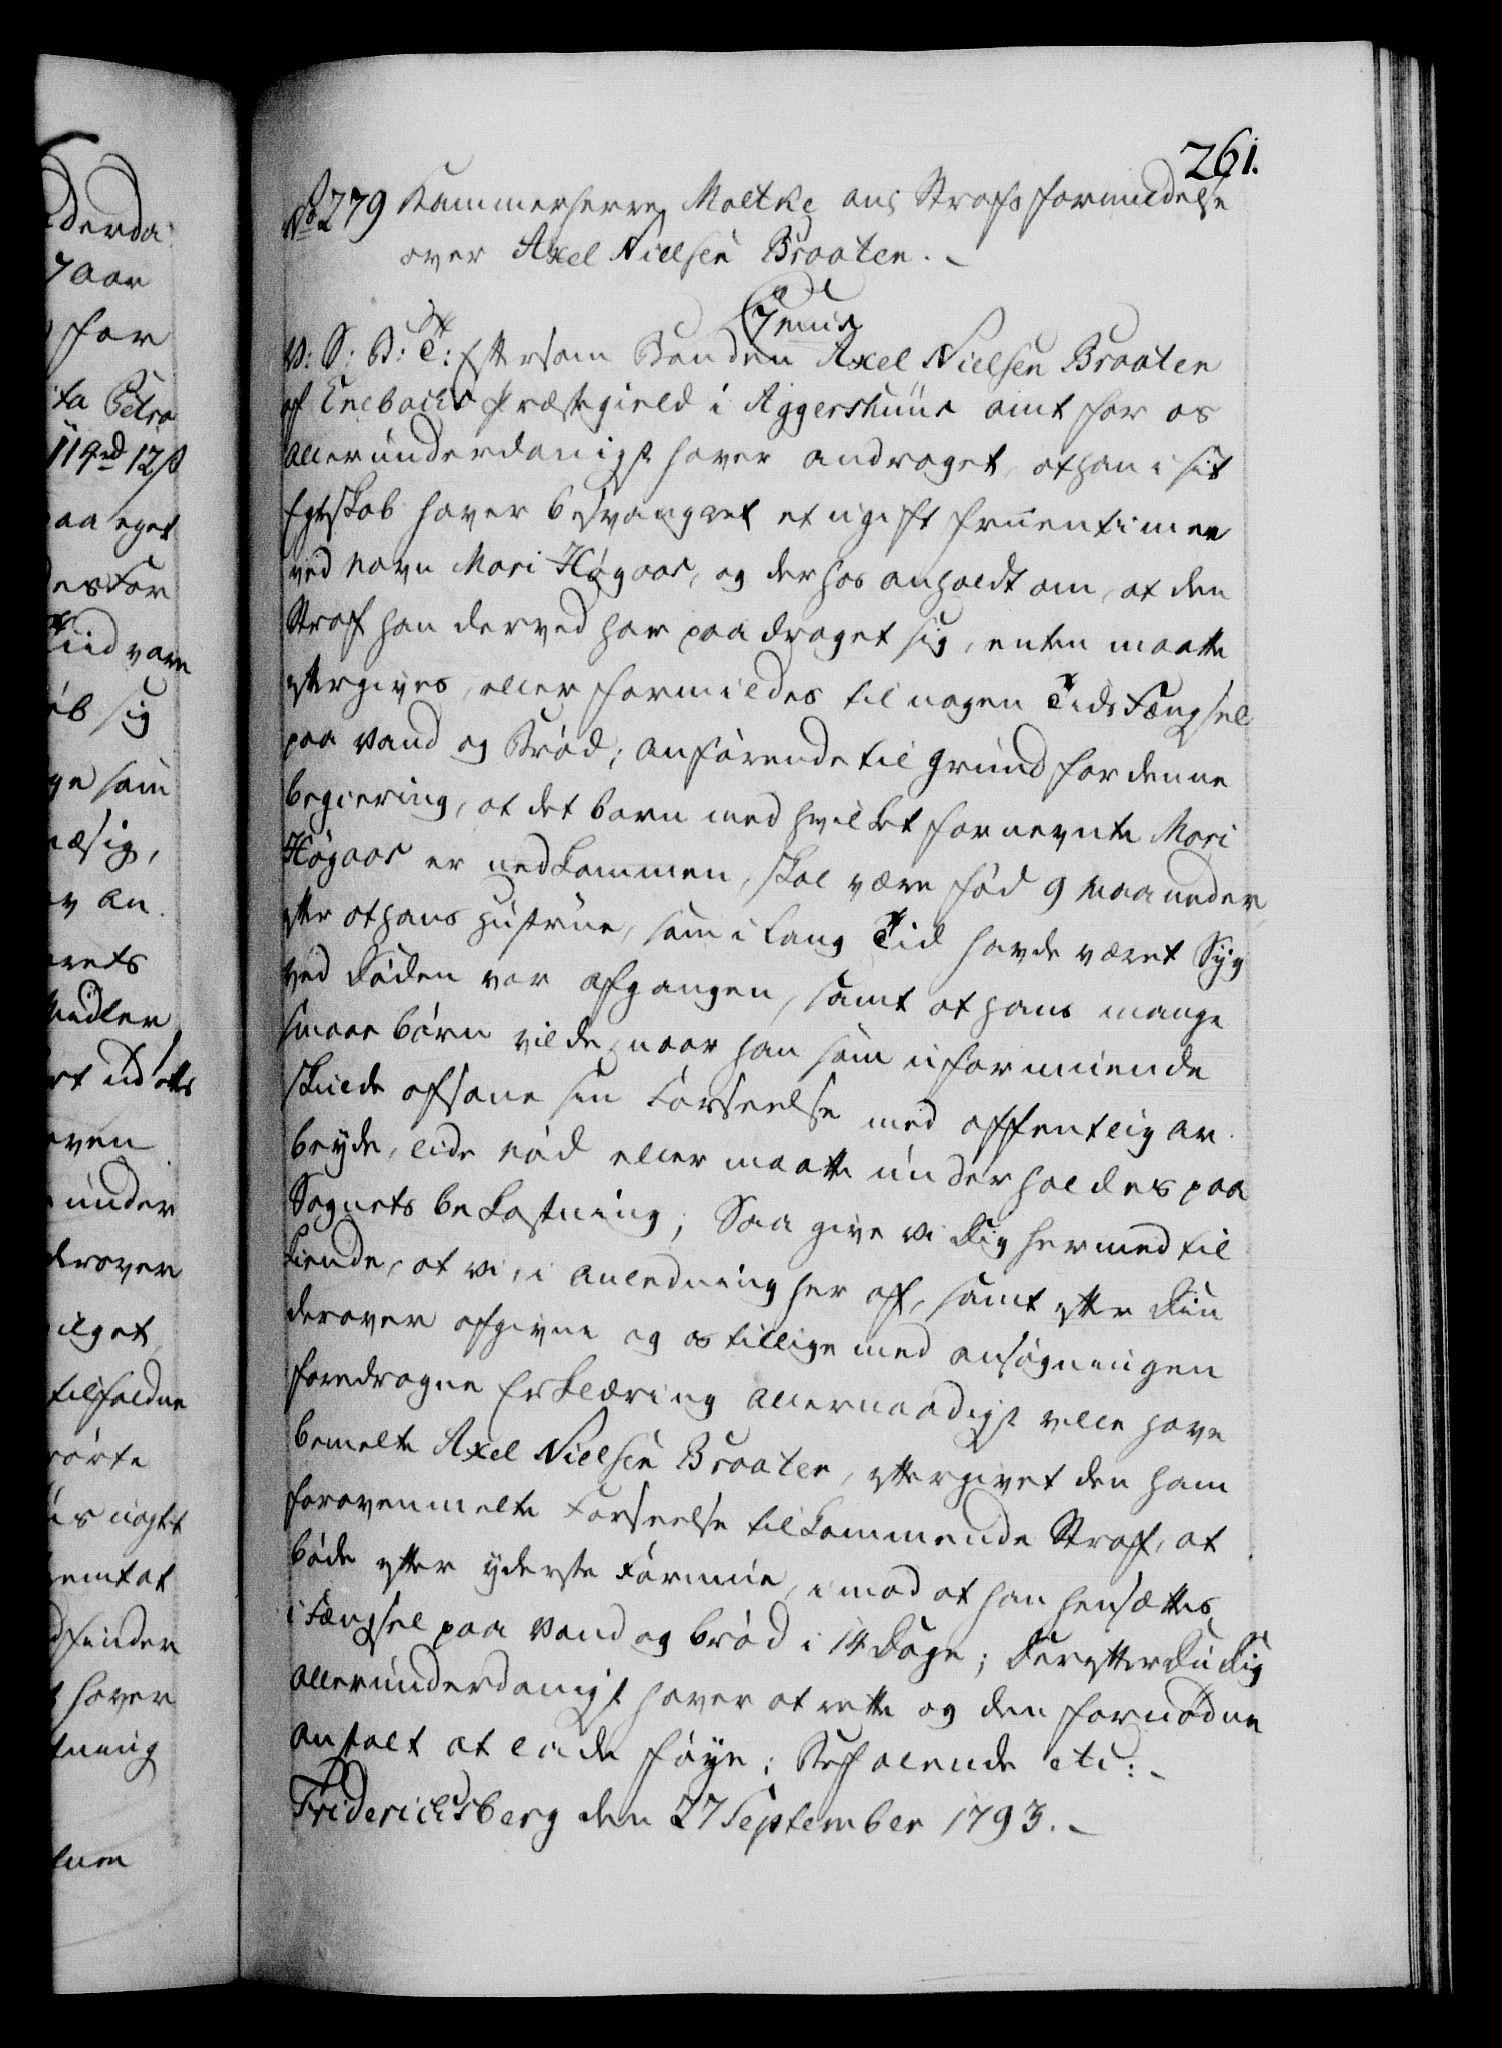 261.
No 279 Kammerherre Moltke ang Strafs formildelse
over Axel Nielsen Braaten. -
V: S: B: T: Eftersom Bonden Axel Nielsen Braaten
af Enebacks Præstegield i Aggershuus amt for os
allerunderdanigst haver andraget, at han i sit
Egteskab haver besvangret et ugift fruentimer
ved navn Mari Høgaas, og derhos anholdt om, at den
Straf han derved har paadraget sig, enten maatte
eftergives, eller formildes til nogen Tids Fængsel
paa Vand og Brød; anførende til grund for denne
begiering, at det barn med hvilket fornevnte Mari
Høgaas er nedkommen, skal være fød 9 maaneder
efter at hans hustrue, som i lang Tid havde været Syg
ved Døden var afgangen, samt at hans mange
smaae børn vilde, naar han som uformuende
skulde afsone sin Forseelse med offentlig ar
beyde, lide nød eller maatte underholdes paa
Sognets bekostning; Saa give vi Dig hermed til
kiende, at vi, i anledning her af, samt efter Din
derover afgivne og os tillige med ansøgningen
foredragne Erklæring allernaadigst ville have
bemelte Axel Nielsen Braaten, eftergivet den ham
for ovenmelte Forseelse tilkommende Straf, at
bøde efter yderste Formue, imod at han hensættes
i Fængsel paa Vand og brød i 14 Dage; Derefter Du Dig
allerunderdanigst haver at rette og den fornødne
anstalt at lade føye; Befalende etc: -
Friderichsberg den 27 September 1793. -